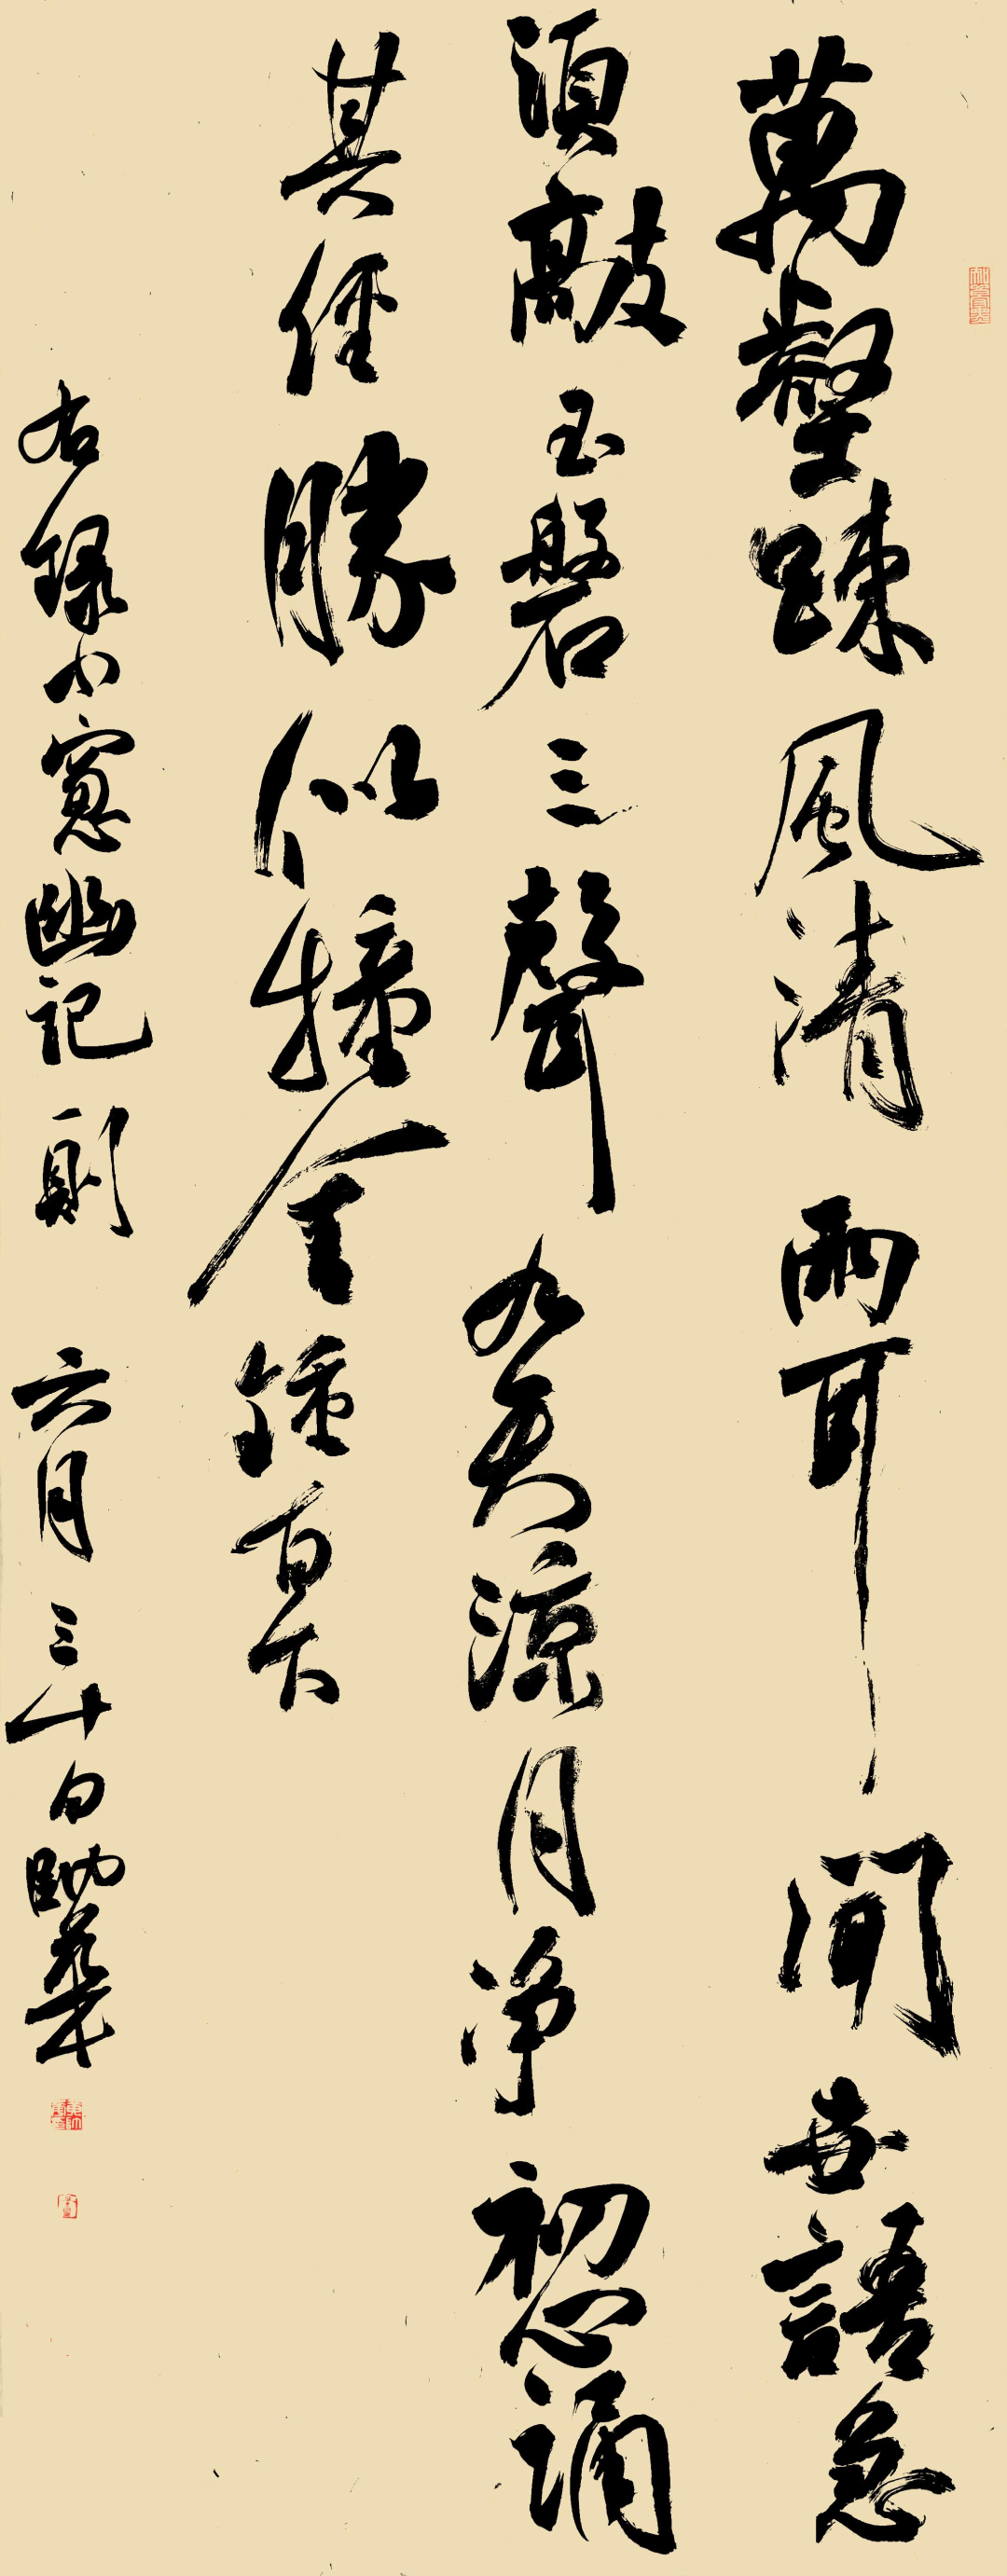 萬壑踈風清兩耳聞世語急
須敲玉磬三聲九天涼月净初心誦
其經勝似撞金鐘百下
右録小窻幽記一則 六月三十日